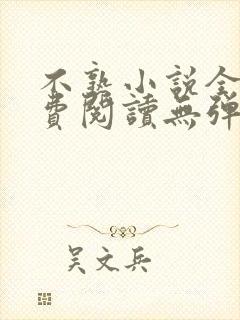 不熟小说全
費閱讀無彈
吴文兵